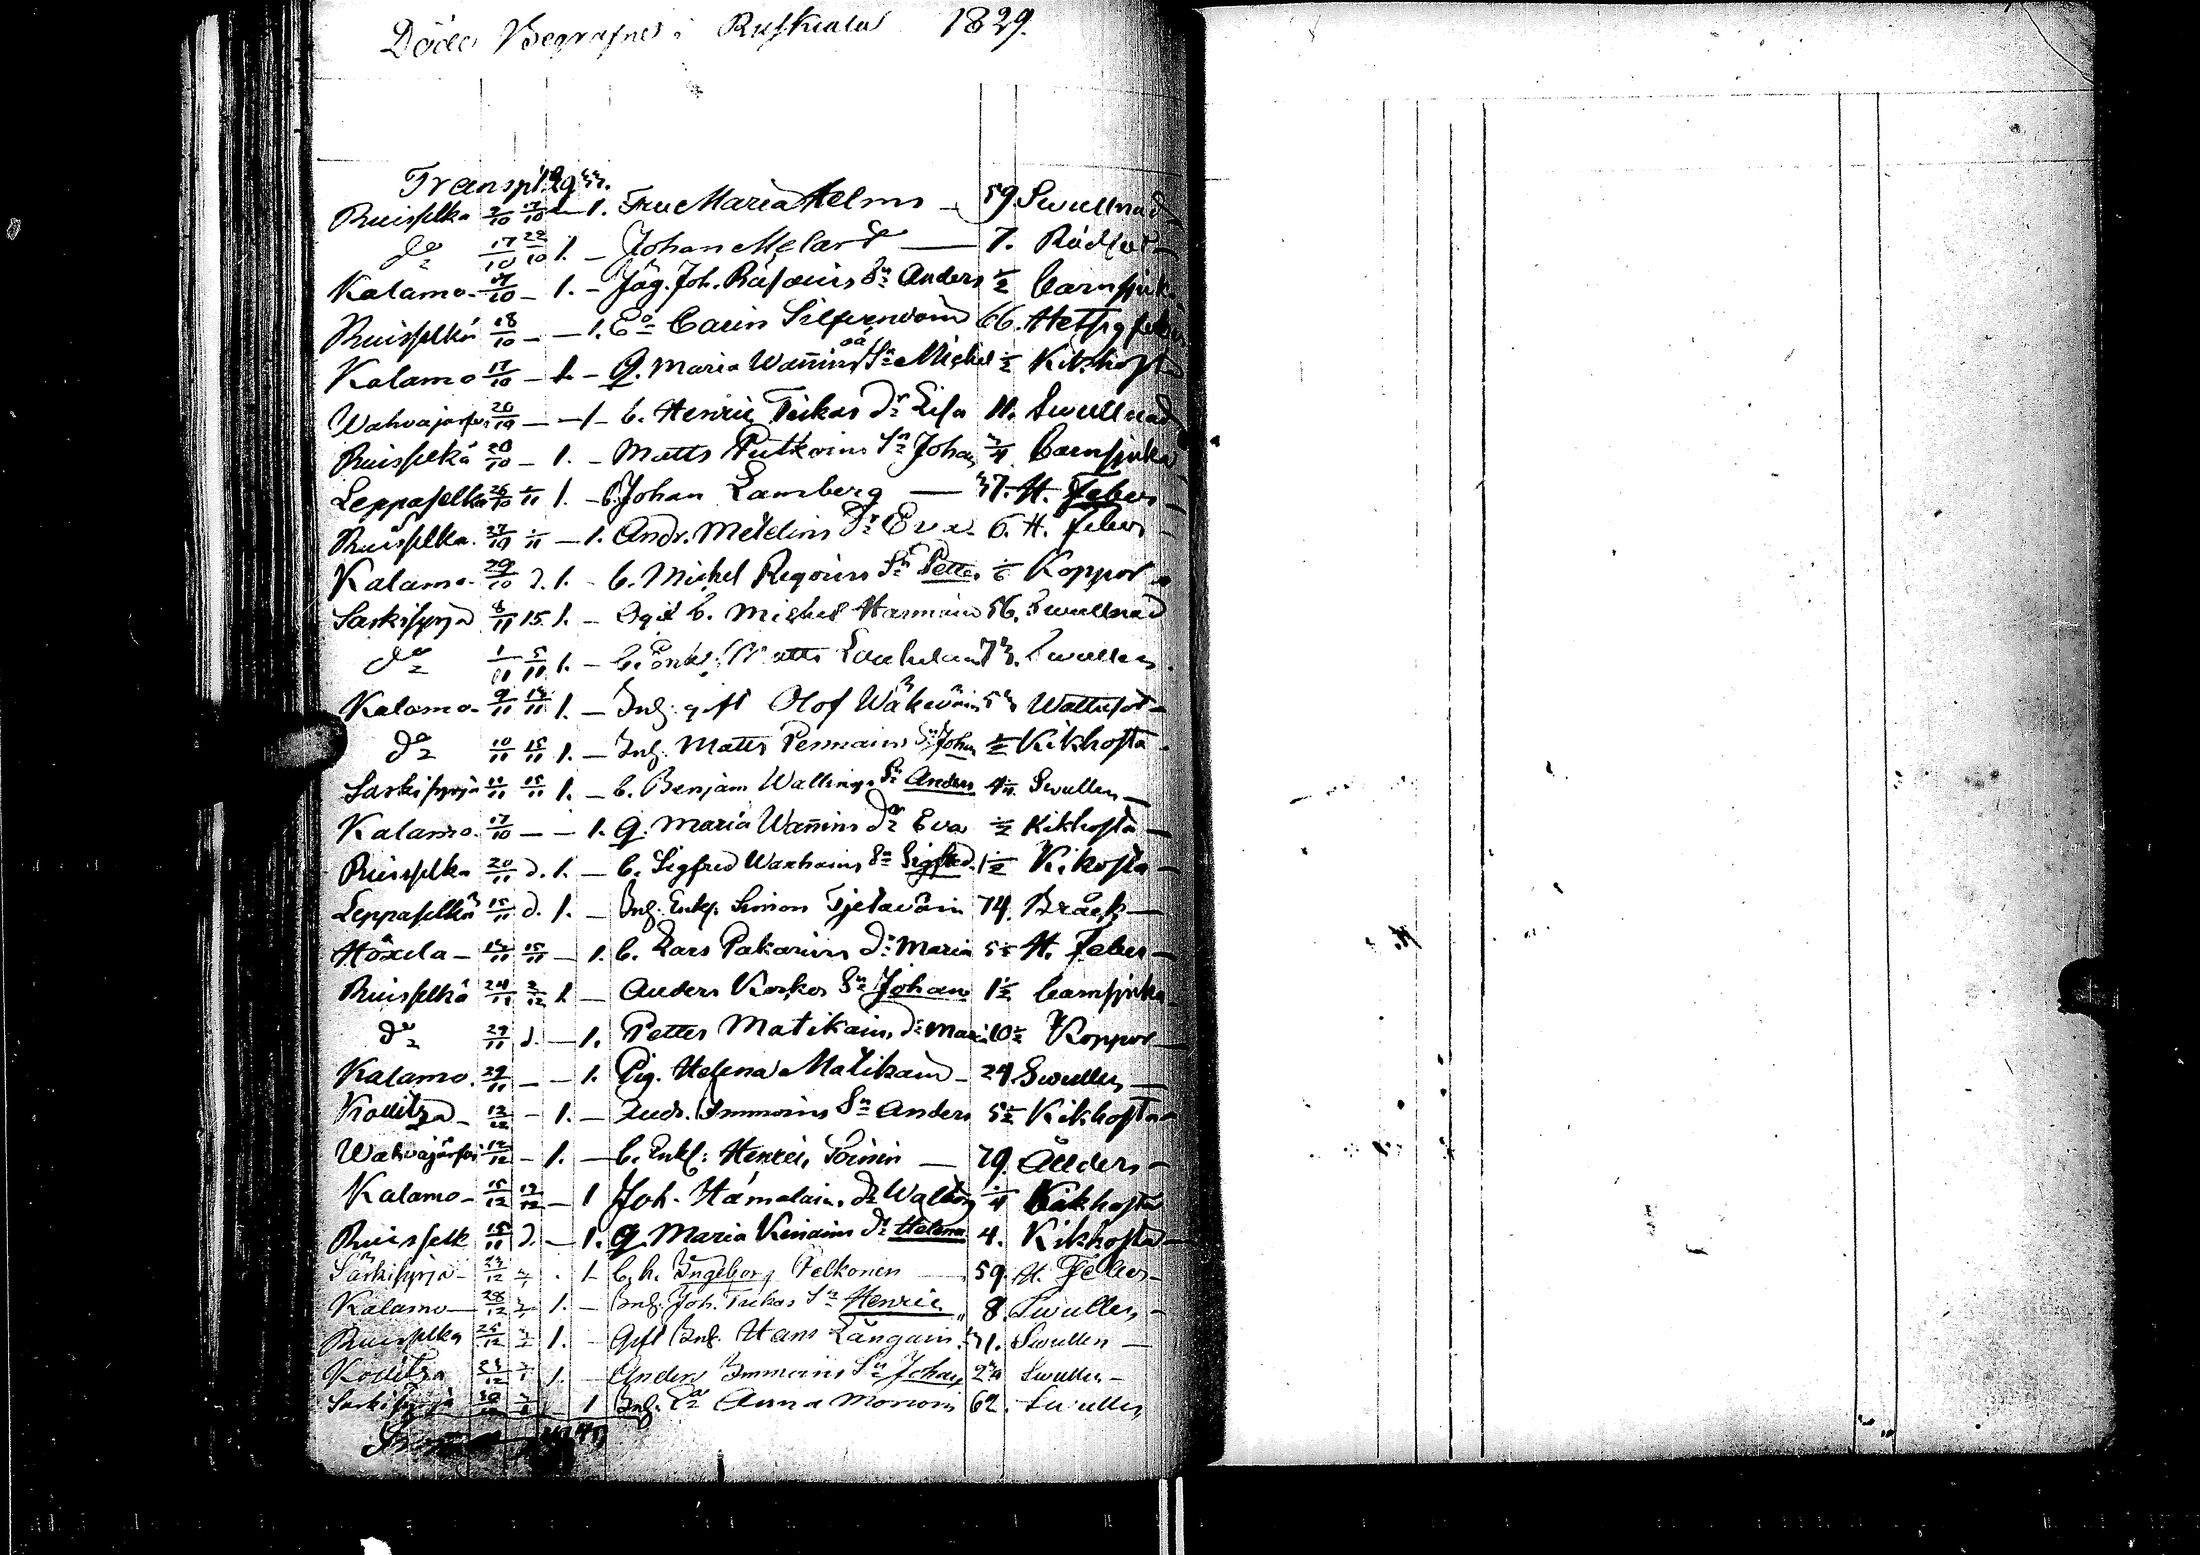 Döde Begrafne i Ruskiala 1829.
Transp:
Ruisselkä 9/10 17/10 – 1. Fru Maria Helms – 59. Swullnad
do 17/10 22/10 1. – Johan Melart – 7. Rödsot –
Kalamo – /10 – 1. – Jäg. Joh. Räsains Sn Anders 1/2 barnsjuk
Ruisselkä 18/10 – – 1. Eo Carin Silfvendoin 66. Hetsig feber
Kalamo 17/10 – 1. – Q. Maria Wañins oä Sn Michel 1/2 Kikhosta
Wahvajärfvi 20/10 – – 1 – b. Henric Tiikas dr Lisa 11. Swullnad
Ruisselkä 20/10 – 1. – Matts Putkoins Sn Johan 3/4 barnsjuka
Leppäselkä 26/10 1/11 1. – b. Johan Lamberg – 37. H. Feber –
Ruisselkä 27/10 1/11 – 1. Andr. Meldins Dr Eva 6. H. feber –
Kalamo – 29/10 d. 1. – b. Michel Regoins Sn Petter 1/6 Koppor
Särkisyrjä 8/11 15 1. – Ogift b. Michel Harmain 56. Swullnad
do 1/11 5/11 1. – b. Enkl. Matts Laukain 73. Swullen.
Kalamo – 9/11 15/11 1. – Inh. gift Olof Wäkeväin 53 Wattusot –
do 10/11 15/11 1. – Inh. Matts Pennains Sn Johan 1/2 Kikhosta –
Särkisyrjä 11/11 15/11 1. – b. Benjam Wallings Sn Anders 4 Swullen –
Kalamo 17/10 – – 1. Q. Maria Wañins dr Eva 1/2 Kikhosta –
Ruisselkä 20/11 d. 1. – b. Sigfred Warhains Sn Sigfred 1 1/2 Kikosta –
Leppäselkä 15/11 d. 1. – Inh. Enkl. Simon Tjetäväin 74. Bråck –
Höxelä – 12/11 15/11 – 1. b. Lars Pakarins Dr Maria 5 1/2 H. Feber –
Ruisselkä 24/11 2/12 1 – Anders Koskos Sn Johan 1 1/2 barnsjuka
do 29/11 d. – 1. Petter Matikain, dr Maria 10 1/2 Koppor –
Kalamo. 29/11 – – 1. Pig. Helena Matikain – 24 Swullen –
Koditza – 12/12 – 1. – Andr. Immoins Sn Anders 5 1/2 Kikhosta –
Wahvajärfvi 12/12 – 1. – b. Enkl: Henric, Toinin – 79. Ålders –
Kalamo – 15/12 19/12 – 1 Joh. Hämälain. dr Walborg 1/4 Kikhosta
Ruisselk 15/11 d. – 1. Q. Maria Kinains dr Helena 4. Kikhosta –
Särkisyrjä – 24/12 – . 1 b. h. Ingeborg Pelkonen – 59. H. Feber –
Kalamo – 28/12 1. – Inh. Joh. Tiikas Sn Henric 8. Swullen –
Ruisselkä 25/12 1. – Gift Inh. Hans Längain. 71. Swullen –
Koditza 24/12 1. – Anders Immoins Sn Johan 2 3/4 Swullen –
Särkisyrjä 30/12 1 Inh. Ea Anna Moroin 62. Swullen